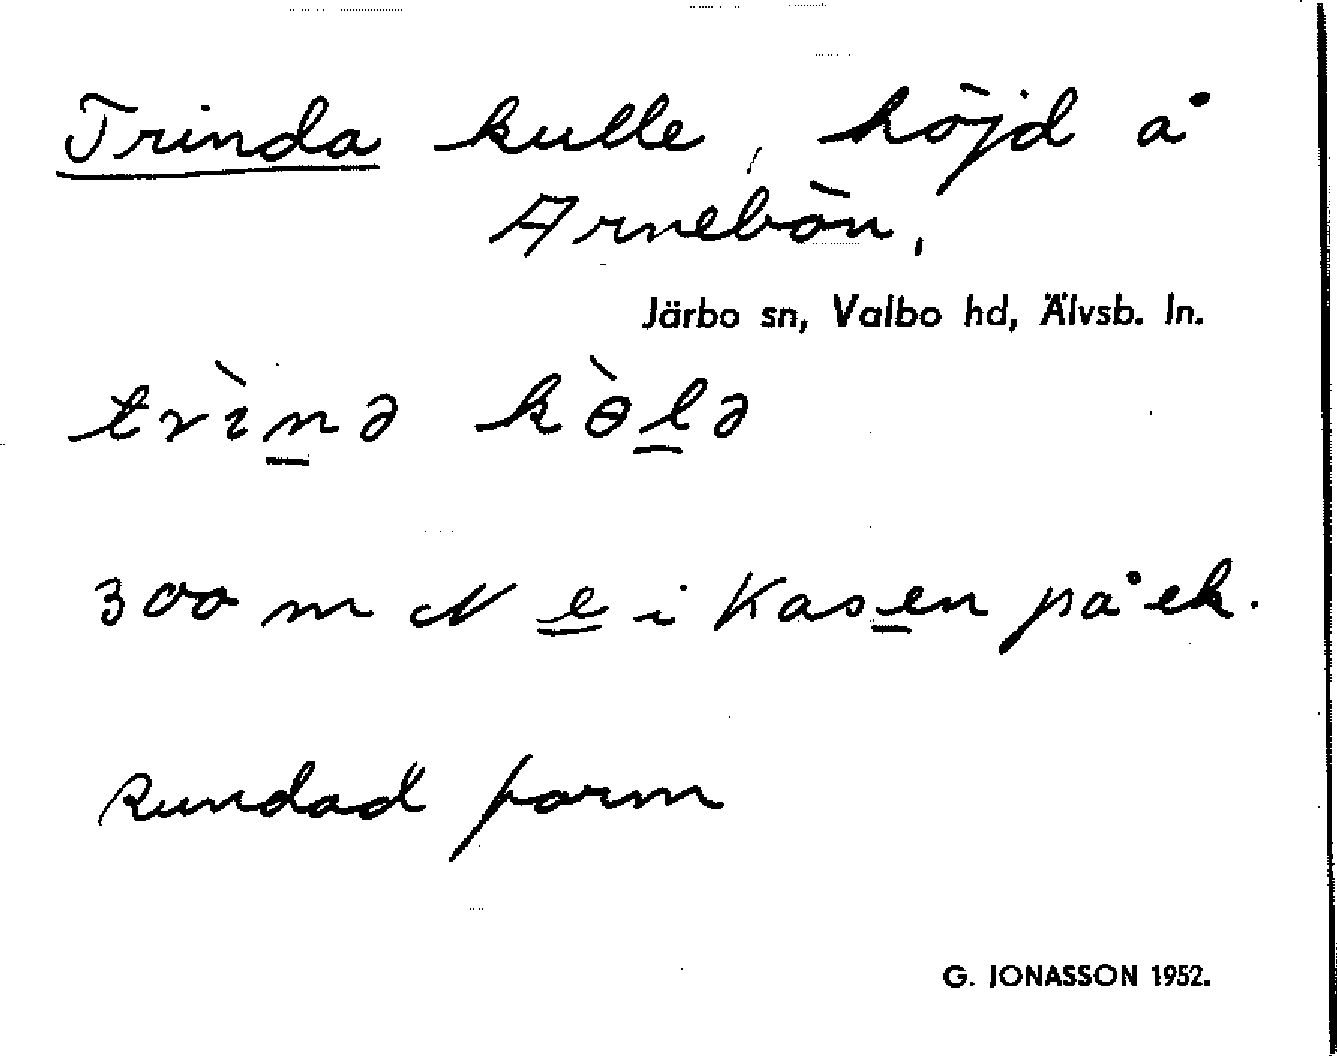 Trinda kulle, höjd å
Arnebön.
Järbo sn, Valbo hd, Älvsb. ln.
trìn̲ə kɵ̀l̲ə
300 m N e i Kasen på ek.
Rundad form
G. JONASSON 1952.